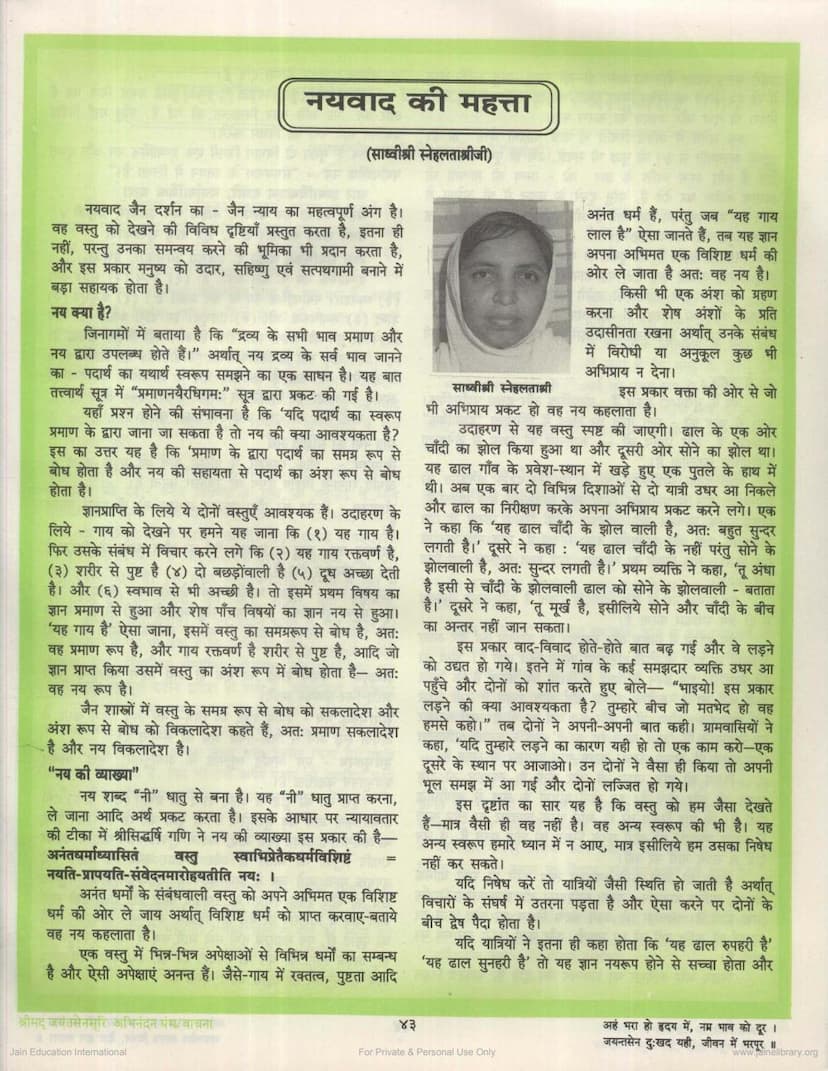 नयवाद की महत्ता
(साध्वीश्री स्नेहलताश्रीजी)
नयवाद जैन दर्शन का - जैन न्याय का महत्वपूर्ण अंग है।
वह वस्तु को देखने की विविध दृष्टियाँ प्रस्तुत करता है, इतना ही
नहीं, परन्तु उनका समन्वय करने की भूमिका भी प्रदान करता है,
और इस प्रकार मनुष्य को उदार, सहिष्णु एवं सत्पथगामी बनाने में
बड़ा सहायक होता है।
नय क्या है?
जिनागमों में बताया है कि “द्रव्य के सभी भाव प्रमाण और
नय द्वारा उपलब्ध होते हैं।” अर्थात् नय द्रव्य के सर्व भाव जानने
का - पदार्थ का यथार्थ स्वरूप समझने का एक साधन है। यह बात
तत्त्वार्थ सूत्र में “प्रमाणनयैरधिगमः” सूत्र द्वारा प्रकट की गई है।
यहाँ प्रश्न होने की संभावना है कि ‘यदि पदार्थ का स्वरूप
प्रमाण के द्वारा जाना जा सकता है तो नय की क्या आवश्यकता है?
इस का उत्तर यह है कि ‘प्रमाण के द्वारा पदार्थ का समग्र रूप से
बोध होता है और नय की सहायता से पदार्थ का अंश रूप से बोध
होता है।
ज्ञानप्राप्ति के लिये ये दोनों वस्तुएँ आवश्यक हैं। उदाहरण के
लिये - गाय को देखने पर हमने यह जाना कि (१) यह गाय है।
फिर उसके संबंध में विचार करने लगे कि (२) यह गाय रक्तवर्ण है,
(३) शरीर से पुष्ट है (४) दो बछड़ोंवाली है (५) दूध अच्छा देती
है। और (६) स्वभाव से भी अच्छी है। तो इसमें प्रथम विषय का
ज्ञान प्रमाण से हुआ और शेष पाँच विषयों का ज्ञान नय से हुआ।
‘यह गाय है’ ऐसा जाना, इसमें वस्तु का समग्ररूप से बोध है, अतः
वह प्रमाण रूप है, और गाय रक्तवर्ण है शरीर से पुष्ट है, आदि जो
ज्ञान प्राप्त किया उसमें वस्तु का अंश रूप में बोध होता है— अतः
वह नय रूप है।
जैन शास्त्रों में वस्तु के समग्र रूप से बोध को सकलादेश और
अंश रूप से बोध को विकलादेश कहते हैं, अतः प्रमाण सकलादेश
है और नय विकलादेश है।
“नय की व्याख्या”
नय शब्द “नी” धातु से बना है। यह “नी” धातु प्राप्त करना,
ले जाना आदि अर्थ प्रकट करता है। इसके आधार पर न्यायावतार
की टीका में श्रीसिद्धर्षि गणि ने नय की व्याख्या इस प्रकार की है—
अनंतधर्माध्यासितं वस्तु स्वाभिप्रेतैकधर्मविशिष्टं =
नयति-प्रापयति-संवेदनमारोहयतीति नयः ।
अनंत धर्मों के संबंधवाली वस्तु को अपने अभिमत एक विशिष्ट
धर्म की ओर ले जाय अर्थात् विशिष्ट धर्म को प्राप्त करवाए-बताये
वह नय कहलाता है।
एक वस्तु में भिन्न-भिन्न अपेक्षाओं से विभिन्न धर्मों का सम्बन्ध
है और ऐसी अपेक्षाएं अनन्त हैं। जैसे-गाय में रक्तत्व, पुष्टता आदि
साध्वीश्री स्नेहलताश्री
अनंत धर्म हैं, परंतु जब “यह गाय
लाल है” ऐसा जानते हैं, तब यह ज्ञान
अपना अभिमत एक विशिष्ट धर्म की
ओर ले जाता है अतः वह नय है।
किसी भी एक अंश को ग्रहण
करना और शेष अंशों के प्रति
उदासीनता रखना अर्थात् उनके संबंध
में विरोधी या अनुकूल कुछ भी
अभिप्राय न देना।
इस प्रकार वक्ता की ओर से जो
भी अभिप्राय प्रकट हो वह नय कहलाता है।
उदाहरण से यह वस्तु स्पष्ट की जाएगी। ढाल के एक ओर
चाँदी का झोल किया हुआ था और दूसरी ओर सोने का झोल था।
यह ढाल गाँव के प्रवेश-स्थान में खड़े हुए एक पुतले के हाथ में
थी। अब एक बार दो विभिन्न दिशाओं से दो यात्री उधर आ निकले
और ढाल का निरीक्षण करके अपना अभिप्राय प्रकट करने लगे। एक
ने कहा कि ‘यह ढाल चाँदी के झोल वाली है, अतः बहुत सुन्दर
लगती है।’ दूसरे ने कहा : ‘यह ढाल चाँदी के नहीं परंतु सोने के
झोलवाली है, अतः सुन्दर लगती है।’ प्रथम व्यक्ति ने कहा, ‘तू अंधा
है इसी से चाँदी के झोलवाली ढाल को सोने के झोलवाली - बताता
है।’ दूसरे ने कहा, ‘तू मूर्ख है, इसीलिये सोने और चाँदी के बीच
का अन्तर नहीं जान सकता।
इस प्रकार वाद-विवाद होते-होते बात बढ़ गई और वे लड़ने
को उद्यत हो गये। इतने में गांव के कई समझदार व्यक्ति उधर आ
पहुँचे और दोनों को शांत करते हुए बोले— “भाइयो! इस प्रकार
लड़ने की क्या आवश्यकता है? तुम्हारे बीच जो मतभेद हो वह
हमसे कहो।” तब दोनों ने अपनी-अपनी बात कही। ग्रामवासियों ने
कहा, ‘यदि तुम्हारे लड़ने का कारण यही हो तो एक काम करो—एक
दूसरे के स्थान पर आजाओ। उन दोनों ने वैसा ही किया तो अपनी
भूल समझ में आ गई और दोनों लज्जित हो गये।
इस दृष्टांत का सार यह है कि वस्तु को हम जैसा देखते
हैं—मात्र वैसी ही वह नहीं है। वह अन्य स्वरूप की भी है। यह
अन्य स्वरूप हमारे ध्यान में न आए, मात्र इसीलिये हम उसका निषेध
नहीं कर सकते।
यदि निषेध करें तो यात्रियों जैसी स्थिति हो जाती है अर्थात्
विचारों के संघर्ष में उतरना पड़ता है और ऐसा करने पर दोनों के
बीच द्वेष पैदा होता है।
यदि यात्रियों ने इतना ही कहा होता कि ‘यह ढाल रुपहरी है’
‘यह ढाल सुनहरी है’ तो यह ज्ञान नयरूप होने से सच्चा होता और
श्रीमद् जयंतसेनसूरि अभिनंदन ग्रंथ/वाचना
४३
अहं भरा हो हृदय में, नम्र भाव को दूर ।
जयन्तसेन दुःखद यही, जीवन में भरपूर ॥
Jain Education International
For Private & Personal Use Only
www.jainelibrary.org